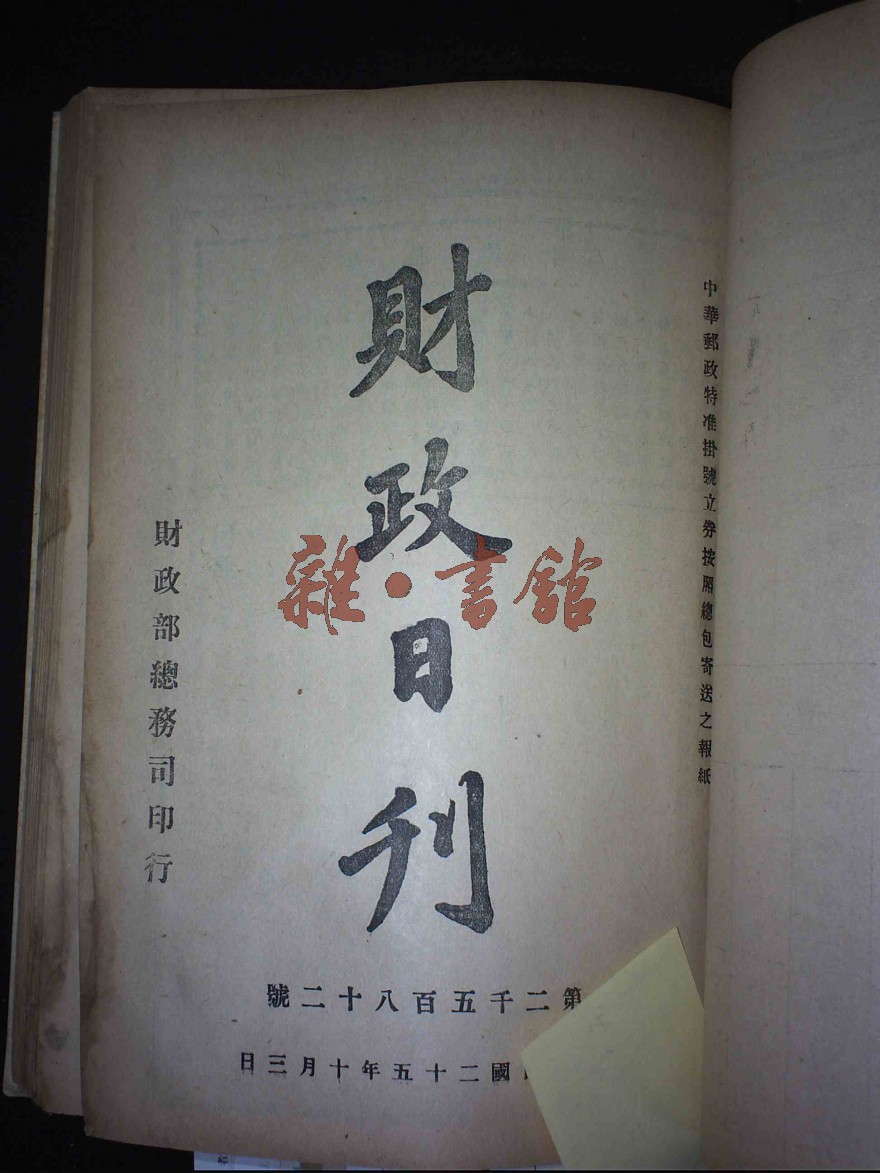 中華郵政特准掛號立券按照總包寄送之報紙
財政日刊
雜·書館
財政部總務司印行
第二千五百八十二號
國二十五年十月三日